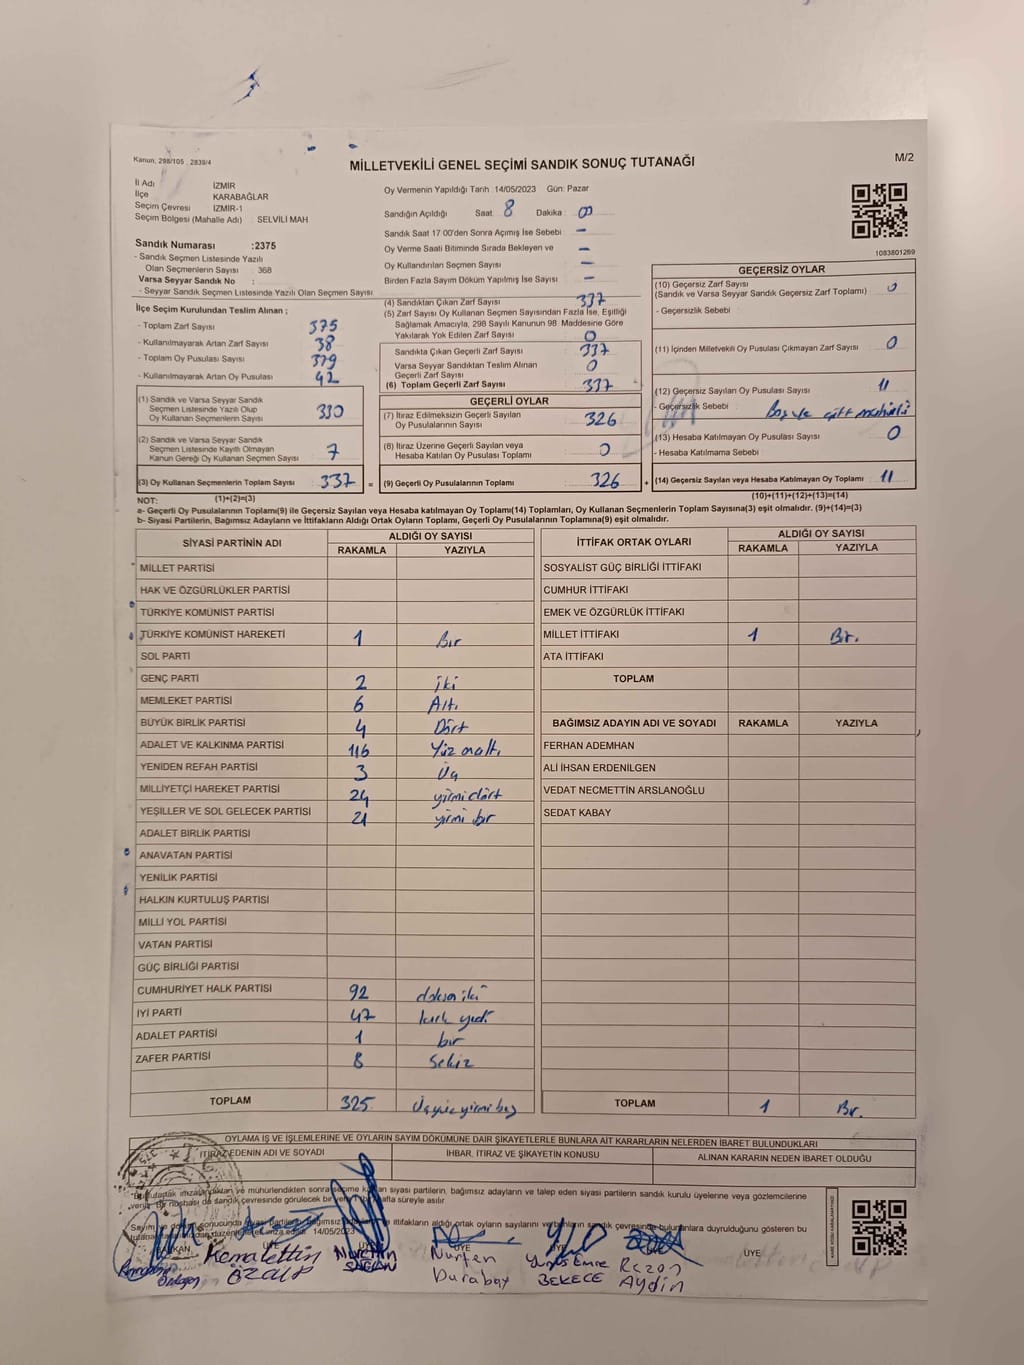 Kanun, 298/105 2839/4
MİLLETVEKİLİ GENEL SEÇİMİ SANDIK SONUÇ TUTANAĞI
M/2
İl Adı İZMİR
İlçe KARABAĞLAR
Seçim Çevresi İZMİR-1
Seçim Bölgesi (Mahalle Adı) : SELVİLİ MAH
Oy Vermenin Yapıldığı Tarih 14/05/2023 Gün: Pazar
Sandığın Açıldığı Saat: 8 Dakika: 00
Sandık Saat 17:00'den Sonra Açımış İse Sebebi –
Oy Verme Saati Bitiminde Sırada Bekleyen ve –
Oy Kullandırılan Seçmen Sayısı –
Birden Fazla Sayım Döküm Yapılmış İse Sayısı –
1083801269
Sandık Numarası :2375
- Sandık Seçmen Listesinde Yazılı
Olan Seçmenlerin Sayısı : 368
Varsa Seyyar Sandık No :
- Seyyar Sandık Seçmen Listesinde Yazılı Olan Seçmen Sayısı
İlçe Seçim Kurulundan Teslim Alınan ;
- Toplam Zarf Sayısı 375
- Kullanılmayarak Artan Zarf Sayısı 38
- Toplam Oy Pusulası Sayısı 379
- Kullanılmayarak Artan Oy Pusulası 42
(1) Sandık ve Varsa Seyyar Sandık
Seçmen Listesinde Yazılı Olup
Oy Kullanan Seçmenlerin Sayısı 330
(2) Sandık ve Varsa Seyyar Sandık
Seçmen Listesinde Kayıtlı Olmayan
Kanun Gereği Oy Kullanan Seçmen Sayısı 7
(3) Oy Kullanan Seçmenlerin Toplam Sayısı 337 =
(4) Sandıktan Çıkan Zarf Sayısı 337
(5) Zarf Sayısı Oy Kullanan Seçmen Sayısından Fazla İse, Eşitliği
Sağlamak Amacıyla, 298 Sayılı Kanunun 98. Maddesine Göre
Yakılarak Yok Edilen Zarf Sayısı 0
Sandıkta Çıkan Geçerli Zarf Sayısı 337
Varsa Seyyar Sandıktan Teslim Alınan
Geçerli Zarf Sayısı 0
(6) Toplam Geçerli Zarf Sayısı 337
GEÇERLİ OYLAR
(7) İtiraz Edilmeksizin Geçerli Sayılan
Oy Pusulalarının Sayısı 326
(8) İtiraz Üzerine Geçerli Sayılan veya
Hesaba Katılan Oy Pusulası Toplamı 0
(9) Geçerli Oy Pusulalarının Toplamı 326 +
GEÇERSİZ OYLAR
(10) Geçersiz Zarf Sayısı
(Sandık ve Varsa Seyyar Sandık Geçersiz Zarf Toplamı) 0
- Geçersizlik Sebebi :
(11) İçinden Milletvekili Oy Pusulası Çıkmayan Zarf Sayısı 0
(12) Geçersiz Sayılan Oy Pusulası Sayısı 11
- Geçersizlik Sebebi : Boş ve çift mühürlü
(13) Hesaba Katılmayan Oy Pusulası Sayısı 0
- Hesaba Katılmama Sebebi
(14) Geçersiz Sayılan veya Hesaba Katılmayan Oy Toplamı 11
NOT: (1)+(2)=(3) (10)+(11)+(12)+(13)=(14)
a- Geçerli Oy Pusulalarının Toplamı(9) ile Geçersiz Sayılan veya Hesaba katılmayan Oy Toplamı(14) Toplamları, Oy Kullanan Seçmenlerin Toplam Sayısına(3) eşit olmalıdır. (9)+(14)=(3)
b- Siyasi Partilerin, Bağımsız Adayların ve İttifakların Aldığı Ortak Oyların Toplamı, Geçerli Oy Pusulalarının Toplamına(9) eşit olmalıdır.
SİYASİ PARTİNİN ADI ALDIĞI OY SAYISI
RAKAMLA YAZIYLA
MİLLET PARTİSİ
HAK VE ÖZGÜRLÜKLER PARTİSİ
TÜRKİYE KOMÜNİST PARTİSİ
TÜRKİYE KOMÜNİST HAREKETİ 1 Bir
SOL PARTİ
GENÇ PARTİ 2 İki
MEMLEKET PARTİSİ 6 Altı
BÜYÜK BİRLİK PARTİSİ 4 Dört
ADALET VE KALKINMA PARTİSİ 116 Yüz onaltı
YENİDEN REFAH PARTİSİ 3 Üç
MİLLİYETÇİ HAREKET PARTİSİ 24 yirmi dört
YEŞİLLER VE SOL GELECEK PARTİSİ 21 yirmi bir
ADALET BİRLİK PARTİSİ
ANAVATAN PARTİSİ
YENİLİK PARTİSİ
HALKIN KURTULUŞ PARTİSİ
MİLLİ YOL PARTİSİ
VATAN PARTİSİ
GÜÇ BİRLİĞİ PARTİSİ
CUMHURİYET HALK PARTİSİ 92 doksan iki
İYİ PARTİ 47 kırk yedi
ADALET PARTİSİ 1 bir
ZAFER PARTİSİ 8 Sekiz
TOPLAM 325 Üçyüz yirmi beş
İTTİFAK ORTAK OYLARI ALDIĞI OY SAYISI
RAKAMLA YAZIYLA
SOSYALİST GÜÇ BİRLİĞİ İTTİFAKI
CUMHUR İTTİFAKI
EMEK VE ÖZGÜRLÜK İTTİFAKI
MİLLET İTTİFAKI 1 Bir.
ATA İTTİFAKI
TOPLAM
BAĞIMSIZ ADAYIN ADI VE SOYADI RAKAMLA YAZIYLA
FERHAN ADEMHAN
ALİ İHSAN ERDENİLGEN
VEDAT NECMETTİN ARSLANOĞLU
SEDAT KABAY
TOPLAM 1 Bir.
OYLAMA İŞ VE İŞLEMLERİNE VE OYLARIN SAYIM DÖKÜMÜNE DAİR ŞİKAYETLERLE BUNLARA AİT KARARLARIN NELERDEN İBARET BULUNDUKLARI
İTİRAZ EDENİN ADI VE SOYADI İHBAR, İTİRAZ VE ŞİKAYETİN KONUSU ALINAN KARARIN NEDEN İBARET OLDUĞU
siyasi partilerin, bağımsız adayların ve talep eden siyasi partilerin sandık kurulu üyelerine veya gözlemcilerine
hafta süreyle asılır
ve ittifakların aldığı ortak oyların sayılarını sandık çevresinde bulunanlara duyrulduğunu gösteren bu
14/05/2023
BAŞKAN ÜYE ÜYE ÜYE
Kemalettin ÖZALP
Nurettin
Nurten Durabay
Yunus Emre BEKECE
Rezan Aydın